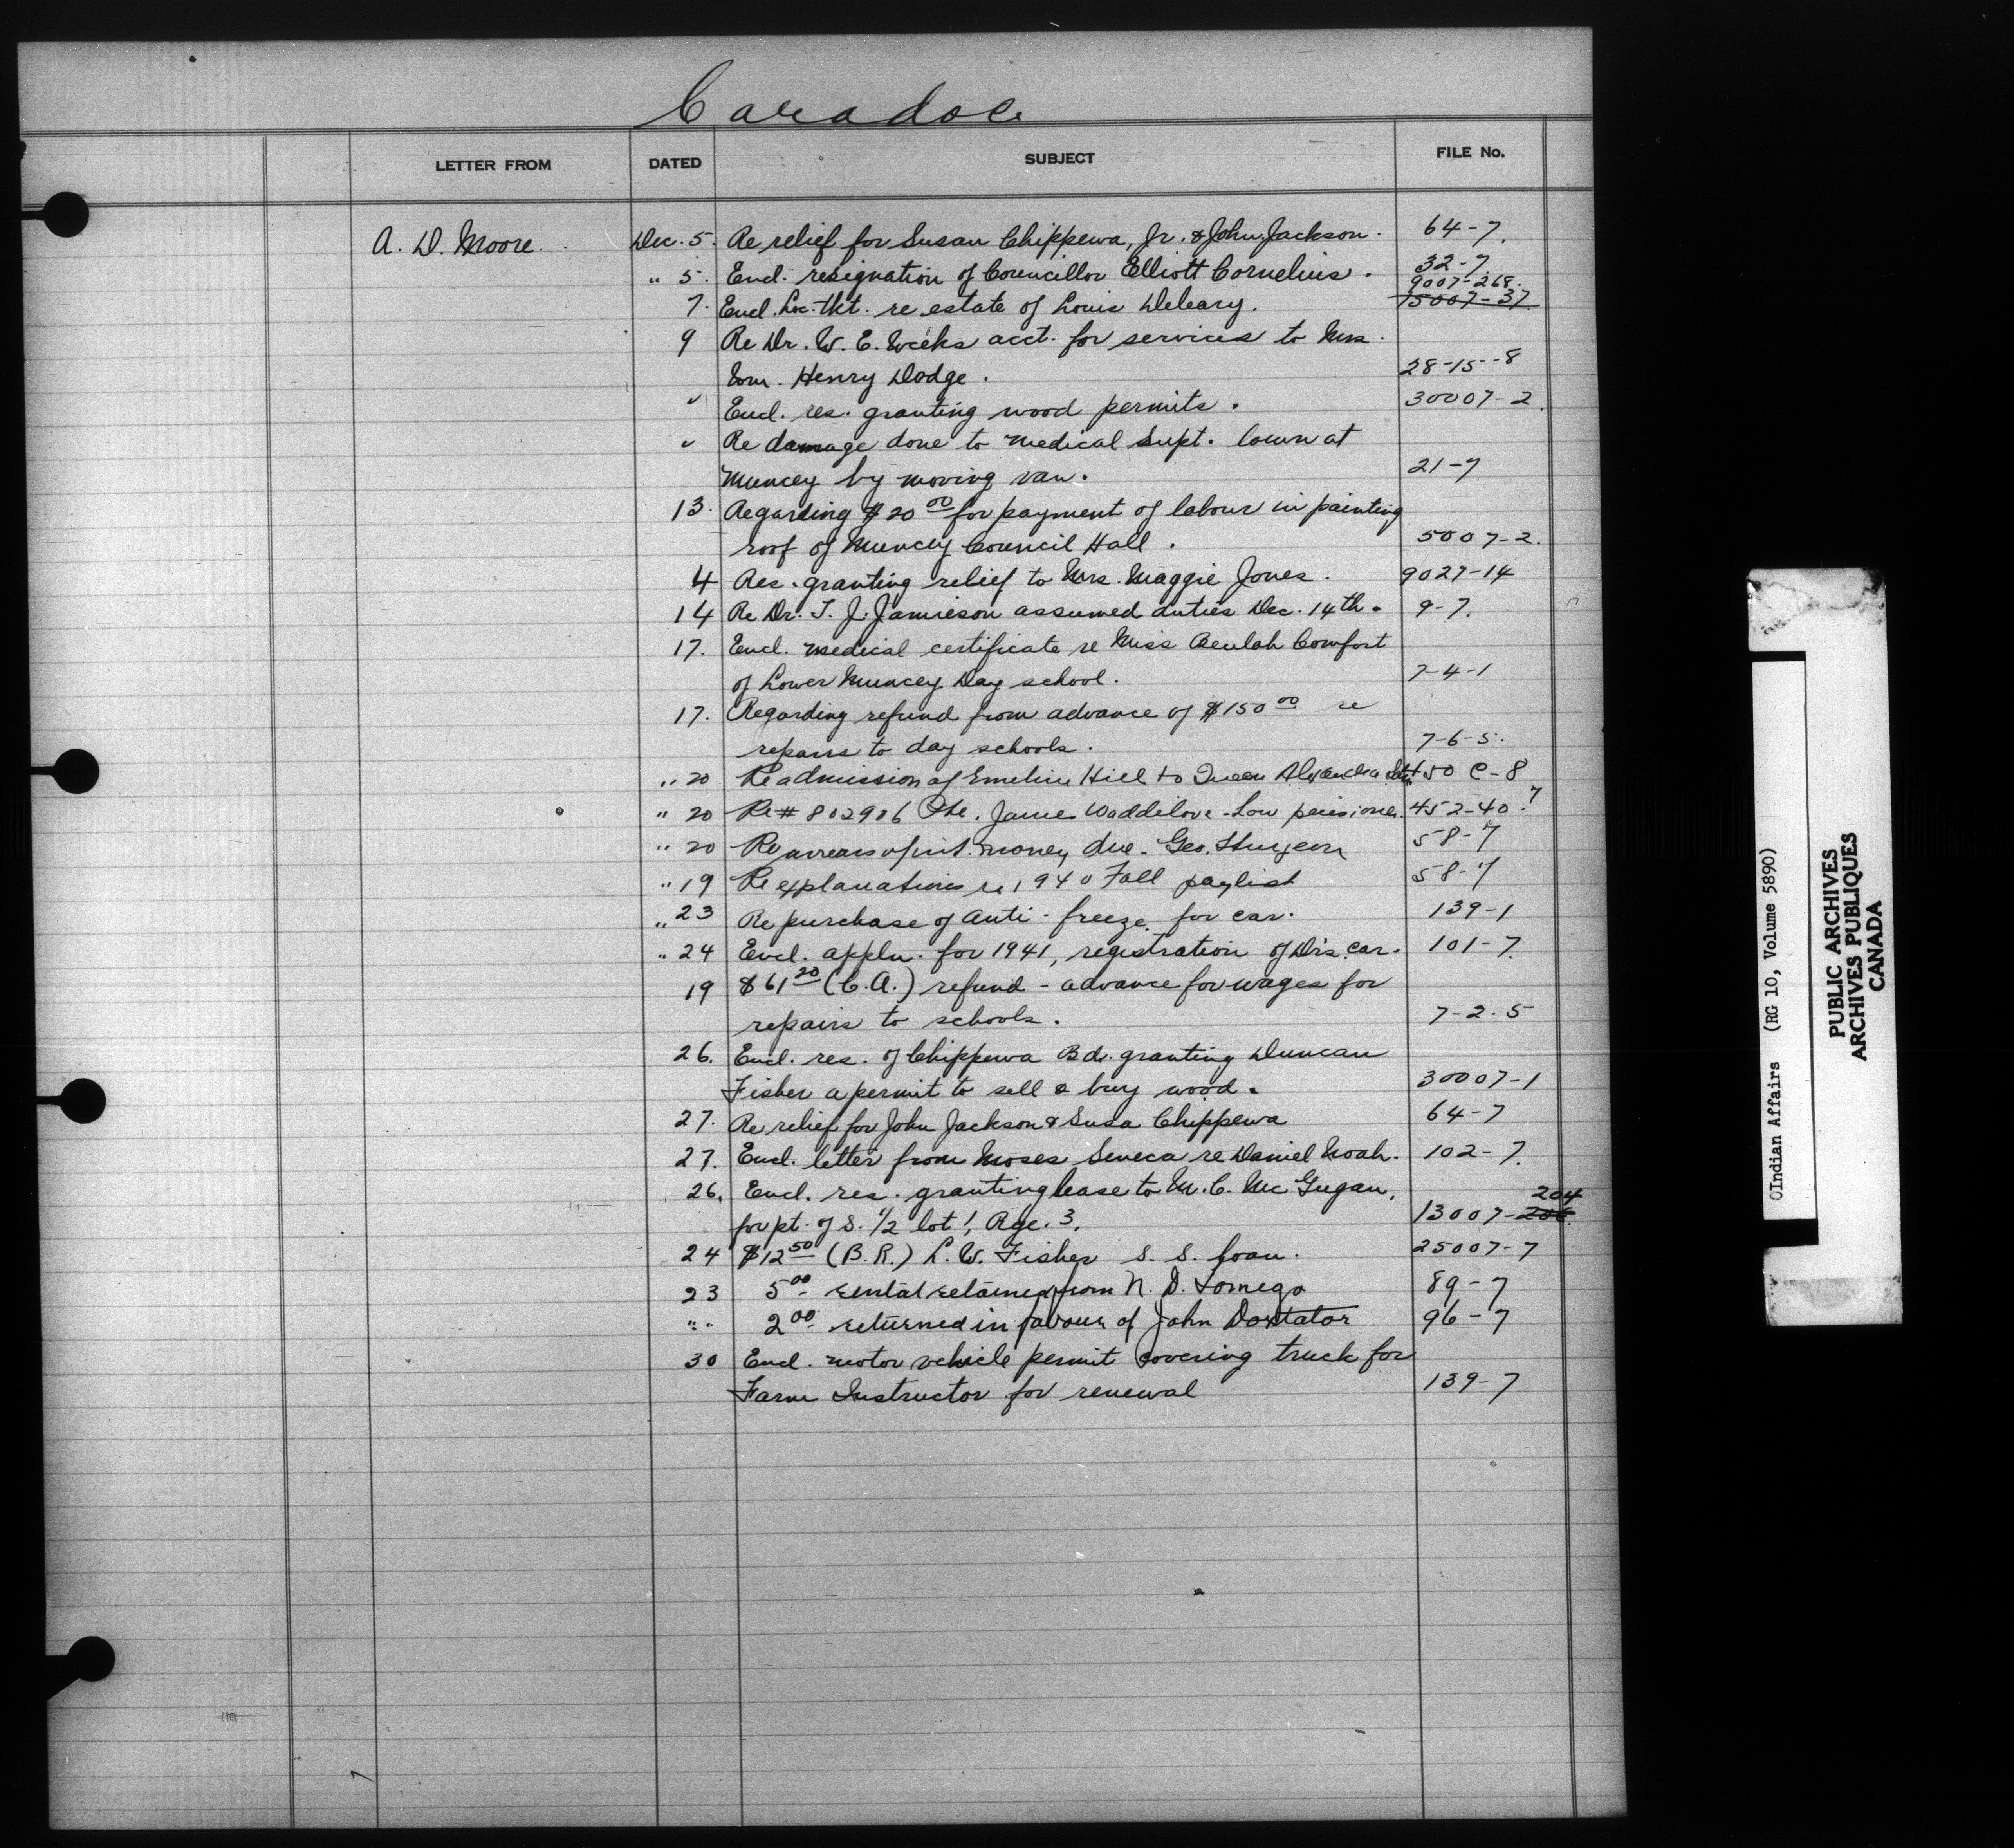 Caradoc
LETTER FROM DATED SUBJECT FILE No.
A. D. Moore. Dec. 5. Re relief for Susan Chippewa, Jr. & John Jackson. 64-7.
" 5. Encl. resignation of Councillor Elliott Cornelius. 32-7.
9007-268.
7. Encl. Loc. tkt. re estate of Louis Deleary. 15007-37.
9 Re Dr. W. E. Weeks acct. for services to Mrs.
Wm. Henry Dodge. 28-15-8
" Encl. res. granting wood permits. 30007-2.
" Re damage done to medical Supt. lawn at
Muncey by moving van. 21-7
13. Regarding $20 00 for payment of labour in painting
roof of Muncey Council Hall. 5007-2.
4 Res. granting relief to Mrs. Maggie Jones. 9027-14
14 Re Dr. T. J. Jamieson assumed duties Dec. 14th. 9-7.
17. Encl. medical certificate re Miss Beulah Comfort
of Lower Muncey Day school. 7-4-1
17. Regarding refund from advance of $150 00 re
repairs to day schools. 7-6-5.
" 20 Re admission of Emeline Hill to Queen Alexandra 450 C-8
" 20 Re # 802906 Pte. James Waddilove - Low pensioner. 452-40.7
" 20 Re arrears of int. money due. Geo. Sturgeon 58-7
" 19 Re explanations re 1940 Fall paylist 58-7
" 23 Re purchase of anti-freeze for car. 139-1
" 24 Encl. appln. for 1941, registration of Dr's. car. 101-7.
19 $61 20 (C.A.) refund - advance for wages for
repairs to schools. 7-2.5
26. Encl. res. of Chippewa Bd. granting Duncan
Fisher a permit to sell & buy wood. 30007-1
27. Re relief for John Jackson & Susa Chippewa 64-7
27. Encl. letter from Moses Seneca re Daniel Noah. 102-7.
26. Encl. res. granting lease to M. C. Mc Gugan,
204
for pt. of S. 1/2 lot 1, Rge. 3. 13007-206.
24 $12 50 (B.R.) L. W. Fisher S. S. Loan. 25007-7
23 5 00 rental retained from N. D. Tomego 89-7
" " 2 00 returned in favour of John Doxtator 96-7
30 Encl. motor vehicle permit covering truck for
Farm Instructor for renewal 139-7
©Indian Affairs (RG 10, Volume 5890)
PUBLIC ARCHIVES
ARCHIVES PUBLIQUES
CANADA